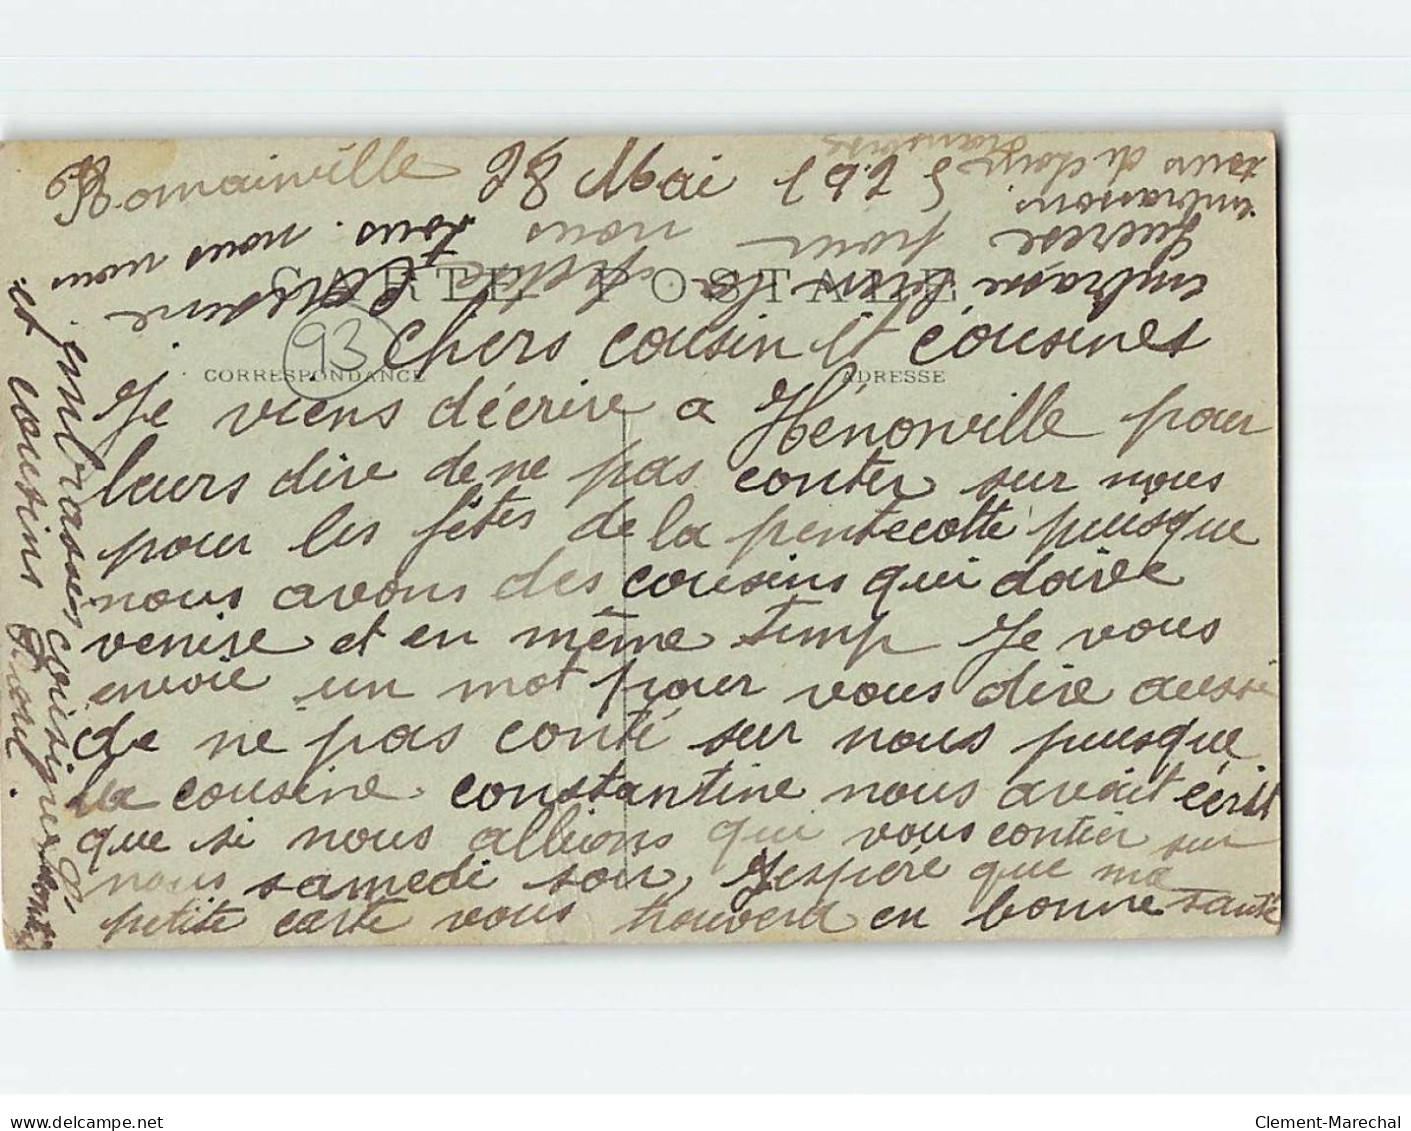 Romainville 28 Mai 1925
CARTE POSTALE
93
Chers cousin et cousines
CORRESPONDANCE
ADRESSE
Je viens décrire a Hénonville pour
leurs dire de ne pas conter sur nous
pour les fêtes de la pentecotte puisque
nous avons des cousins qui doive
venire et en même temp Je vous
envoie un mot pour vous dire aussi
de ne pas conté sur nous puisque
la cousine constantine nous avait écrit
que si nous allions qui vous contier sur
nous samedi soir, Jespère que ma
petite carte vous trouvera en bonne santé
et cousins
embrasses cousines
nous nous tous
embrasse bien la petite
Lucrese pour nous
embrassons
tous de
www.delcampe.net
Clement-Marechal